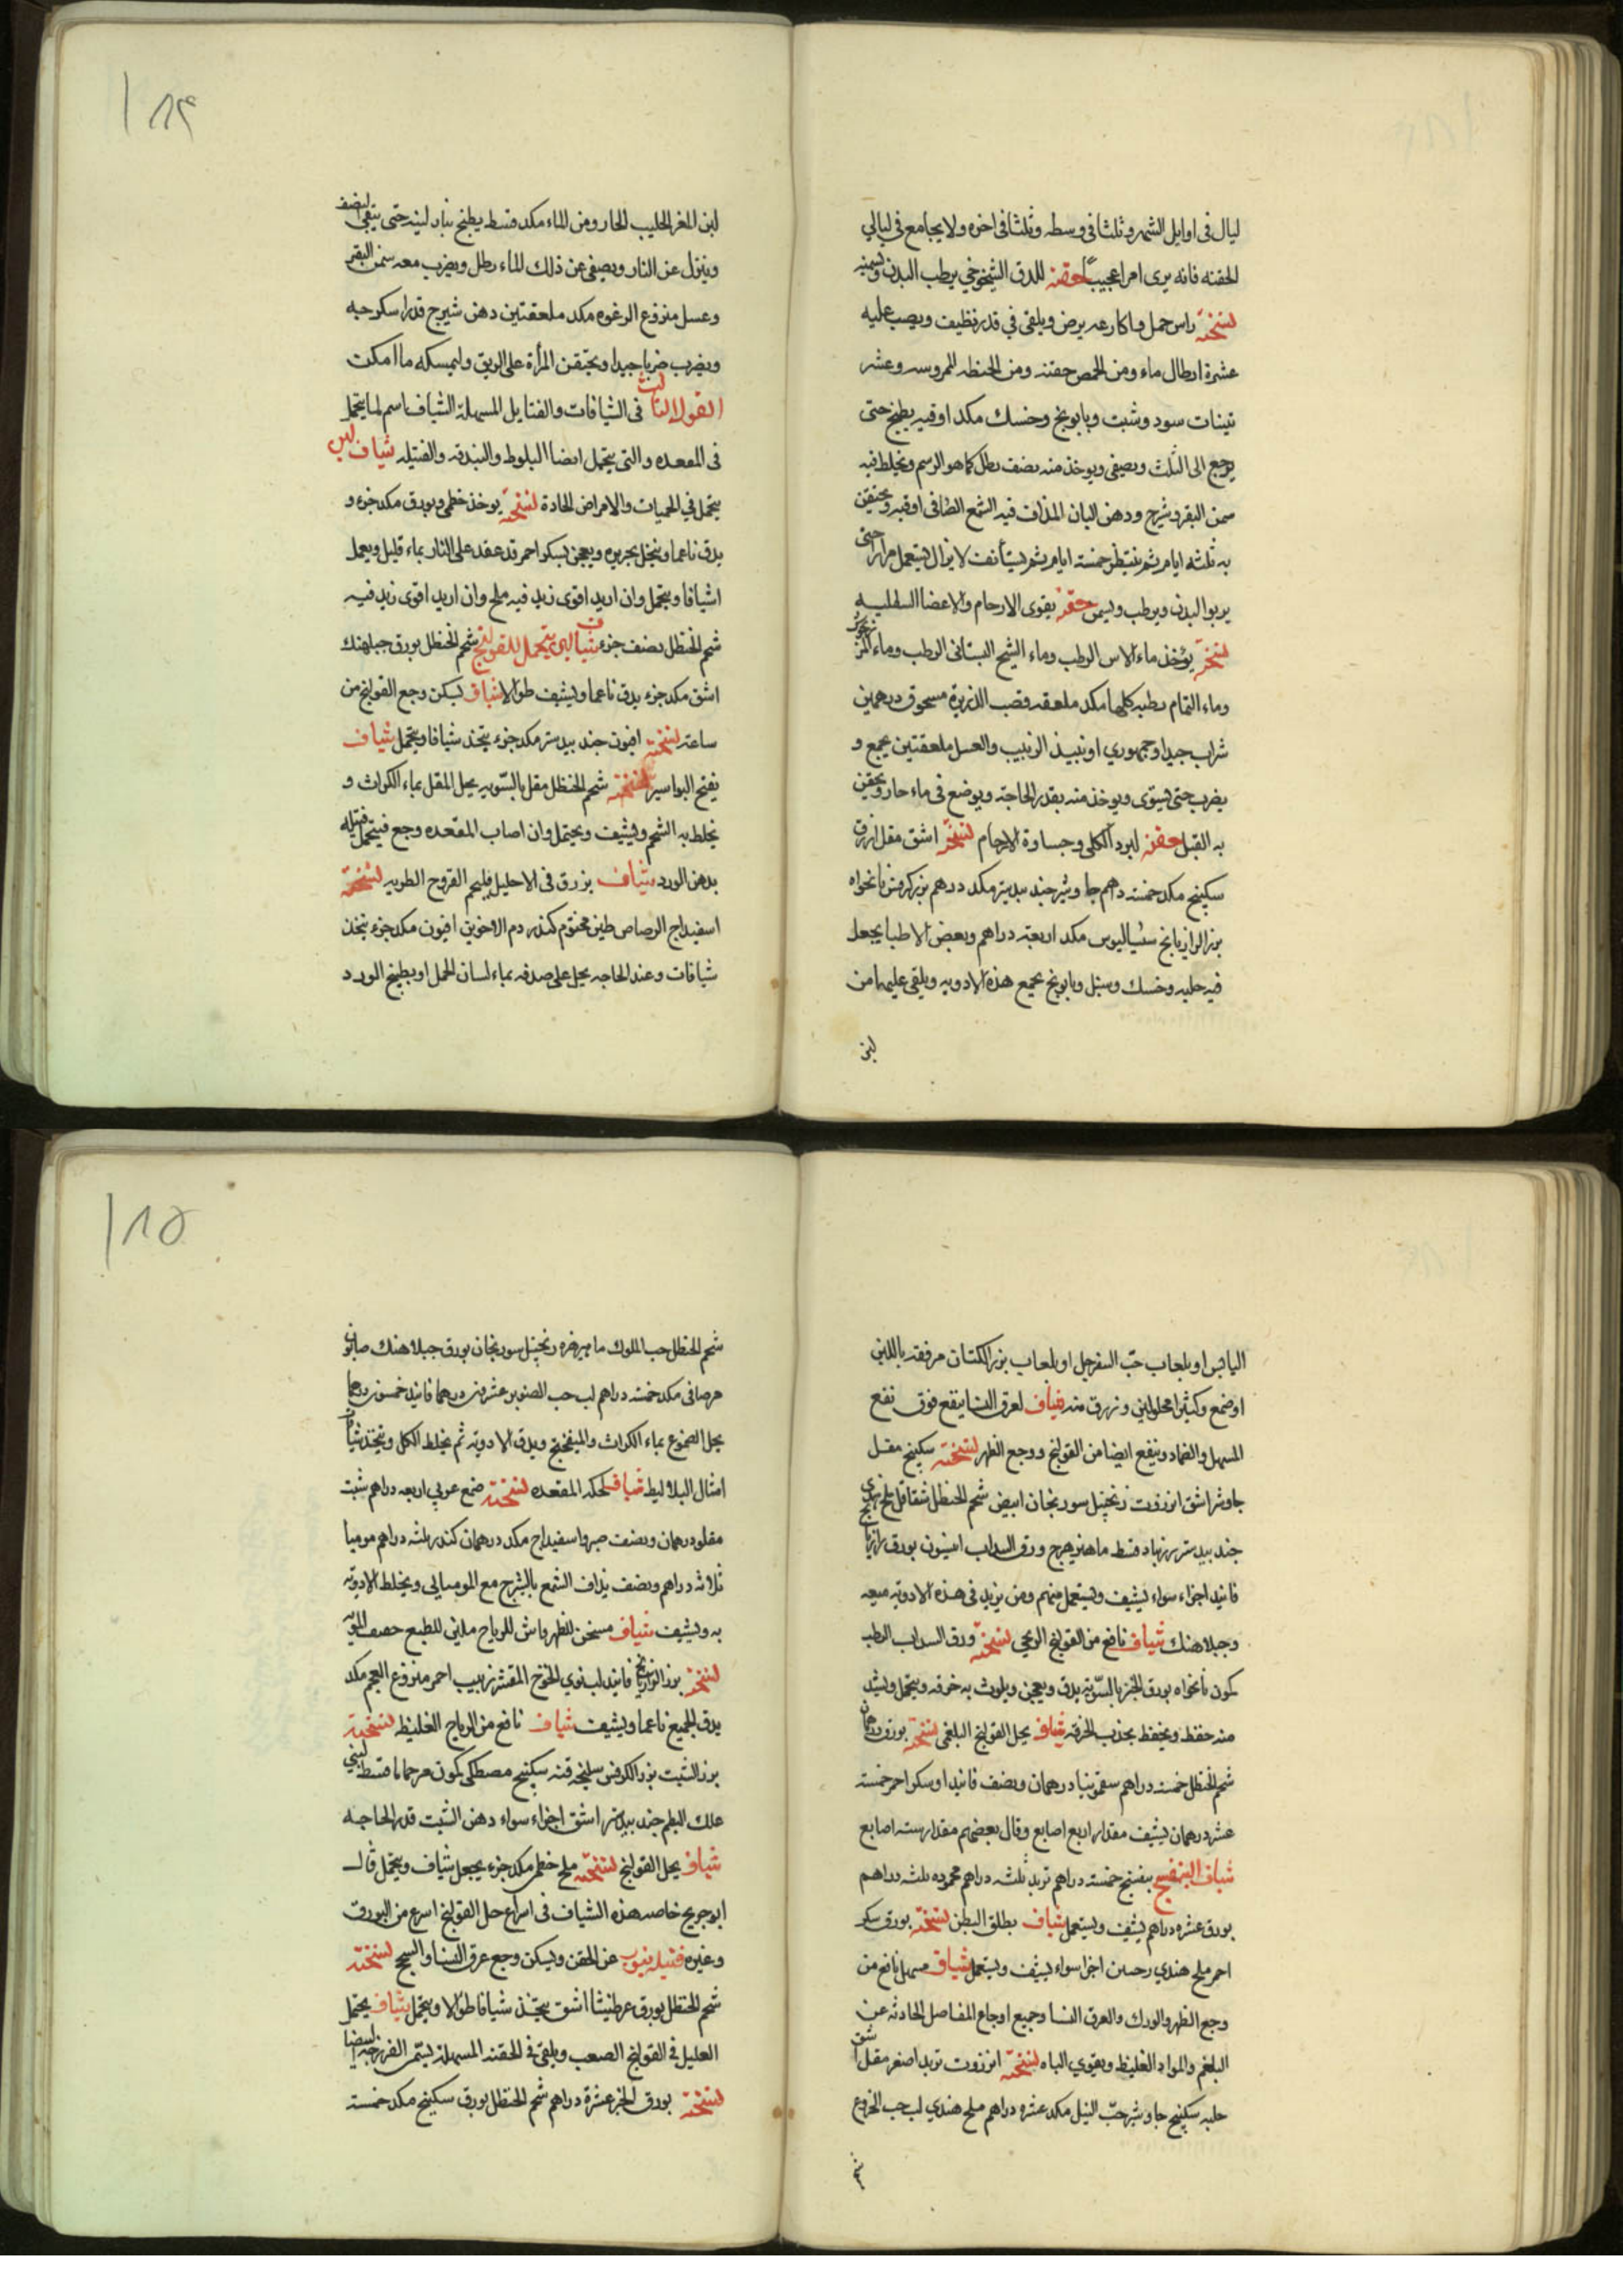 ليال فى اوايل الشهر وثلثا فى وسطه وثلثا فى اخره ولا يجامع فى ليالي
الحقنه فانه يرى امرا عجيبا حقنه للدق الشيخوخي يرطب البدن ويسمنه
نسخته راس حمل واكارعه يرض ويلقى في قدر نظيف ويصب عليه
عشرة ارطال ماء ومن الحمص حفنة ومن الحنطه المهروسه وعشر
تينات سود وشبت وبابونج وحسك مكد اوقيه يطبخ حتى
يرجع الى الثلث ويصفى ويوخذ منه نصف رطل كما هو الرسم ويخلط فيه
سمن البقر وشيرج ودهن البان المذاف فيه الشمع الصافى اوقيه ويحتقن
به ثلثه ايام ثم ينتظر خمسة ايام ثم يستأنف لا يزال يستعمل مرارا حتى
يربوا البدن ويرطب ويسمن حقنه يقوى الارحام والاعضا السفليه
نسخته يؤخذ ماء الاس الرطب وماء الشيح البستانى الرطب وماء المرزنجوش
وماء النمام رطبه كلها مكد ملعقه وقصب الذريرة مسحوق درهمين
شراب جيد او جمهوري او نبيذ الزبيب والعسل ملعقتين يجمع و
يضرب حتى يستوى ويوخذ منه بقدر الحاجة ويوضع فى ماء حار ويحقن
به القبل حقنه لبرد الكلى وجساوة الارحام نسخته اشق مقل ازرق
سكبينج مكد خمسة دراهم جاوشير جندبيدستر مكد درهم بزر كرفس نانخواه
بزر الرازيانج سساليوس مكد اربعة دراهم وبعض الاطبا يجعل
فيه حلبه وحسك وسنبل وبابونج يجمع هذه الادويه ويلقى عليها من
لبن
١٨٤
لبن المعز الحليب الحار ومن الماء مكد قسط يطبخ بنار لينه حتى يبقى النصف
وينزل عن النار ويصفى عن ذلك الماء رطل ويضرب معه سمن البقر
وعسل منزوع الرغوه مكد ملعقتين دهن شيرج قدر اسكرجه
ويضرب ضربا جيدا ويحتقن المرأة على الريق وليمسكه ما امكن
القول الثالث فى الشيافات والفتايل المسهلة الشياف اسم لما يتحمل
فى المقعده والتى يتحمل ايضا البلوط والبندقه والفتيله شياف لين
يتحمل في الحميات والامراض الحادة نسخته يوخذ خطمى وبورق مكد جزء و
يدق ناعما وينخل بحريره ويعجن بسكر احمر قد عقد على النار بماء قليل ويعمل
اشيافا ويتحمل وان اريد اقوى زيد فيه ملح وان اريد اقوى زيد فيه
شحم الحنظل نصف جزء شياف لين يتحمل للقولنج شحم الحنظل بورق جبلهنك
اشق مكد جزء يدق ناعما ويشيف طوالا شياف يسكن وجع القولنج من
ساعته نسخته افيون جندبيدستر مكد جزء يتخذ شيافا ويتحمل شياف
يفتح البواسير نسخته شحم الحنظل مقل بالسويه يحل المقل بماء الكراث و
يخلط به الشحم ويشيف ويحتمل وان اصاب المقعده وجع فيتحمل فتيله
بدهن الورد شياف يزرق فى الاحليل فيلحم القروح الطريه نسخته
اسفيداج الرصاص طين مختوم كندر دم الاخوين افيون مكد جزء يتخذ
شيافات وعند الحاجه يحل على صدفه بماء لسان الحمل او بطبيخ الورد
اليابس او بلعاب حب السفرجل او بلعاب بزر الكتان مرفقه باللبن
او صمغ وكثيرا محلولين ويزرق منه شياف لعرق النسا ينفع فوق نفع
المسهل والضماد وينفع ايضا من القولنج ووجع الظهر نسخته سكبينج مقل
جاوشير اشق انزروت زنجبيل سورنجان ابيض شحم الحنظل شقاقل ملح هندي
جندبيدستر زرنباد قسط ماهيزهرج ورق السداب انيسون بورق رازيانج
فانيد اجزاء سواء يشيف ويستعمل منهم ومن يزيد فى هذه الادويه ميعه
وجبلاهنك شياف نافع من القولنج الريحي نسخته ورق السداب الرطب
كمون نانخواه بورق الخبز بالسويه يدق ويعجن ويلوث به خرقه ويتحمل ويشد
منه حفظ ويحفظ بجذب الخرقه شياف يحل القولنج البلغمى نسخته بورق درهمان
شحم الحنظل خمسة دراهم سقمونيا درهمان ونصف فانيد او سكر احمر خمسة
عشر درهمان يشيف مقدار اربع اصابع وقال بعضهم مقدار ستة اصابع
شياف البنفسج بنفسج خمسة دراهم تربد ثلثه دراهم محموده ثلثه دراهم
بورق عشره دراهم يشيف ويستعمل شياف يطلق البطن نسخته بورق سكر
احمر ملح هندي اجزا سواء يشيف ويستعمل شياف مسهل نافع من
وجع الظهر والورك والعرق النسا وجميع اوجاع المفاصل الحادثه عن
البلغم والمواد الغليظه ويقوي الباه نسخته انزروت تربد اصفر مقل اشق
حلبه سكبينج جاوشير حب النيل مكد عشره دراهم ملح هندي لب حب الخروع
شحم
١٨٥
شحم الحنظل حب الملوك ماهيزهره زنجبيل سورنجان بورق جبلاهنك صابون
مكد خمسة دراهم لب حب الصنوبر عشرون درهما فانيد خمسون درهما
يحل الصموغ بماء الكراث والميفختج ويدق الادويه ثم يخلط الكل ويتخذ شيافا
امثال البلاليط شياف لحكه المقعده نسخته صمغ عربي اربعه دراهم شبت
مقلو درهمان ونصف صبر واسفيداج مكد درهمان كندر ثلثه دراهم موميا
ثلاثه دراهم ونصف يذاف الشمع بالشيرج مع الموميايى ويخلط الادويه
به ويشيف شياف مسخن للظهر فاش للرياح ملين للطبع
نسخته بزر الرازيانج فانيد لب نوى الخوخ المقشر زبيب احمر منزوع العجم مكد
يدق الجميع ناعما ويشيف شياف نافع من الرياح الغليظه نسخته
بزر الشبت بزر الكرفس سليخه قنه سكبينج مصطكى كمون قسط لبني
علك البطم جندبيدستر اشق اجزاء سواء دهن الشبت قدر الحاجه
شياف يحل القولنج نسخته ملح خطمى مكد جزء يجعل شياف ويتحمل قال
ابو جريج خاصه هذه الشياف فى اسراع حل القولنج اسرع من البورق
وغيره فتيله ينوب عن الحقن ويسكن وجع عرق النسا والسحج نسخته
شحم الحنظل بورق عرطنيثا اشق يتخذ شيافا طوالا ويتحمل شياف يحتمل
العليل فى القولنج الصعب ويلقى فى الحقنه المسهلة يسمى الفرزجه ايضا
نسخته بورق الخبز عشرة دراهم شحم الحنظل بورق سكبينج مكد خمسة